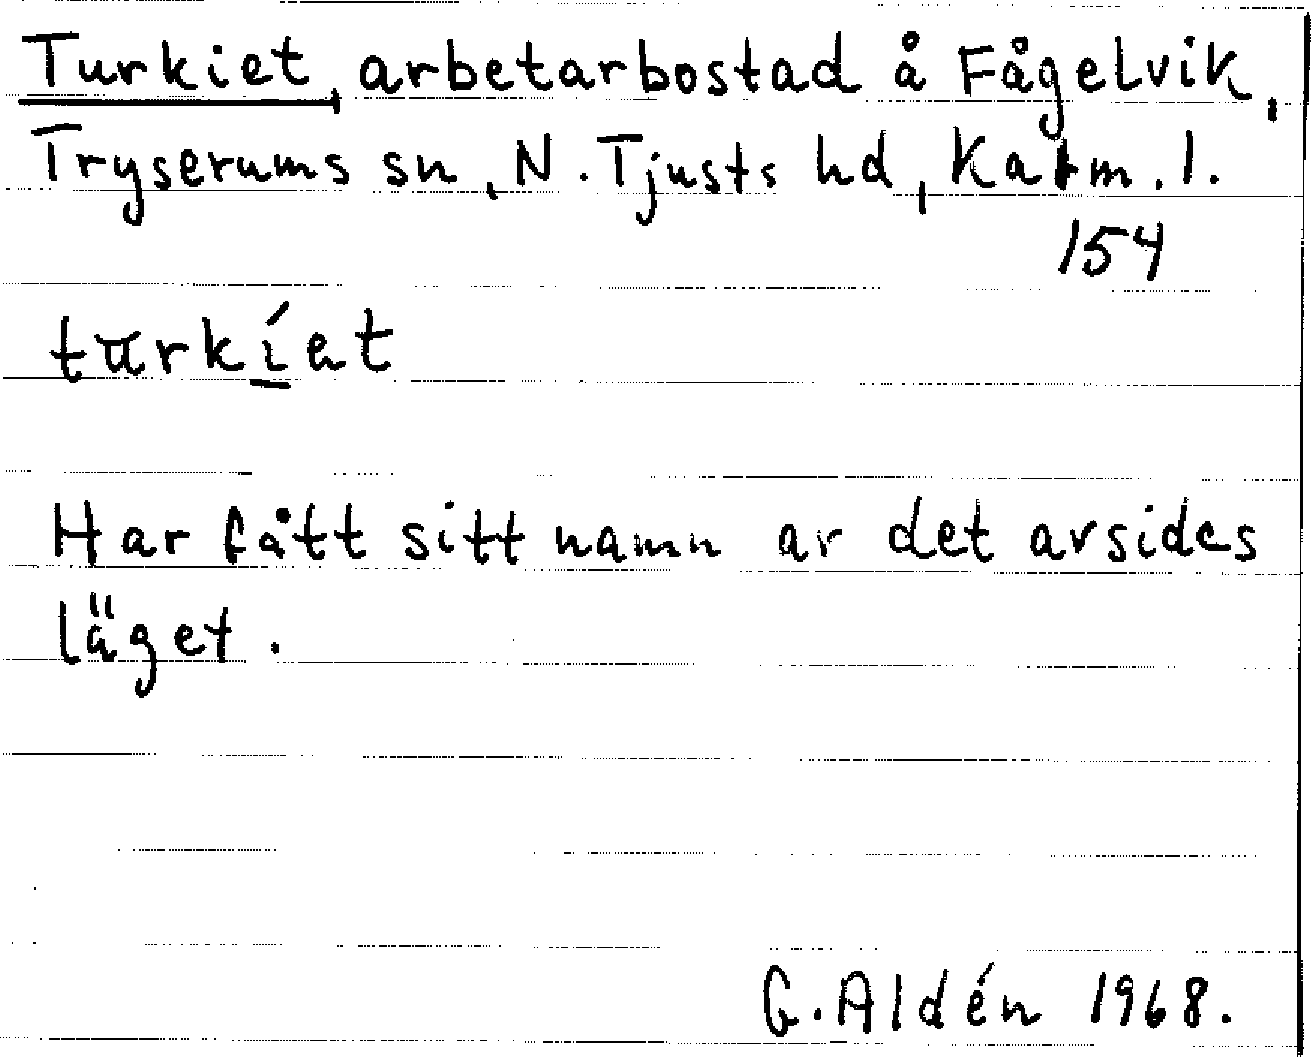 Turkiet, arbetarbostad å Fågelvik,
Tryserums sn, N. Tjusts hd, Kalm. l.
154
turkíet
Har fått sitt namn av det avsides
läget.
G. Aldén 1968.